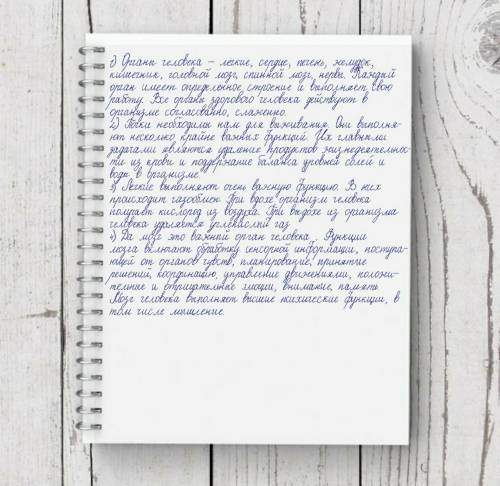 1) Органы человека – легкие, сердце, печень, желудок,
кишечник, головной мозг, спинной мозг, нервы. Каждый
орган имеет определенное строение и выполняет свою
работу. Все органы здорового человека действуют в
организме согласованно, слаженно.
2) Почки необходимы нам для выживания. Они выполня-
ют несколько крайне важных функций. Их главными
задачами являются удаление продуктов жизнедеятельнос-
ти из крови и поддержание баланса уровней солей и
воды в организме.
3) Легкие выполняют очень важную функцию. В них
происходит газообмен. При вдохе организм человека
получает кислород из воздуха. При выдохе из организма
человека удаляется углекислый газ.
4) Да мозг это важный орган человека . Функции
мозга включают обработку сенсорной информации, поступа-
ющей от органов чувств, планирование, принятие
решений, координацию, управление движениями, положи-
тельные и отрицательные эмоции, внимание, память.
Мозг человека выполняет высшие психические функции, в
том числе мышление.